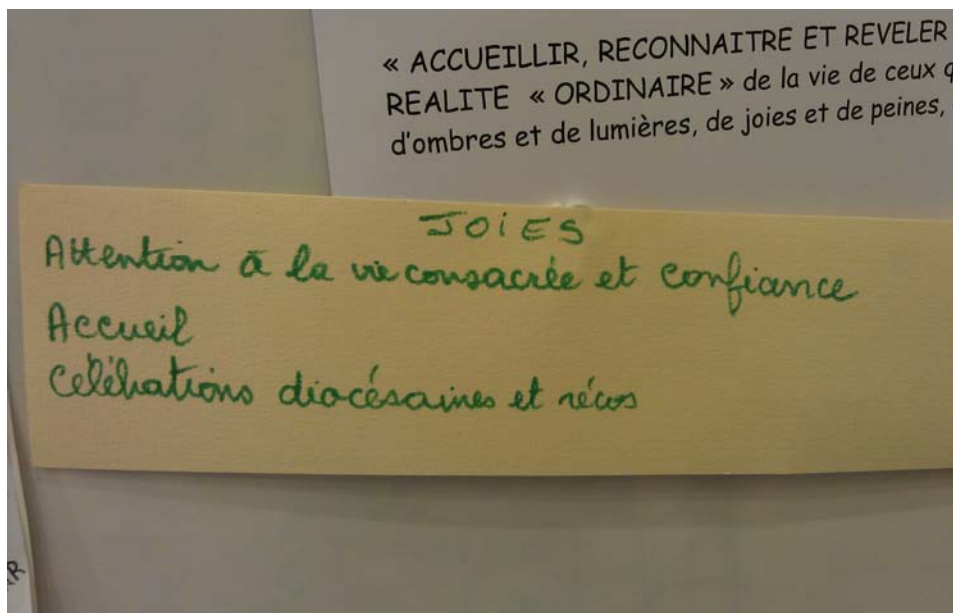 « ACCUEILLIR, RECONNAITRE ET REVELER
REALITE « ORDINAIRE » de la vie de ceux q
d'ombres et de lumières, de joies et de peines,
JOiES
Attention à la vie consacrée et confiance
Accueil
Célébrations diocésaines et récos